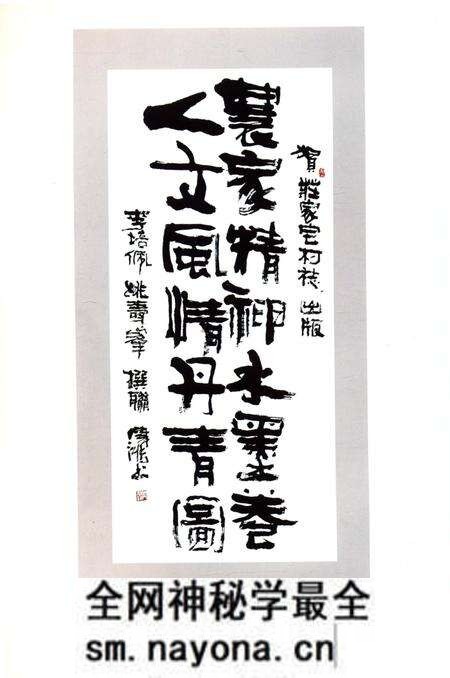 賀莊家宅村志出版
農家精神水墨卷
人文風情丹青圖
李培佩 姚壽岸 撰聯
全网神秘学最全
sm.nayona.cn